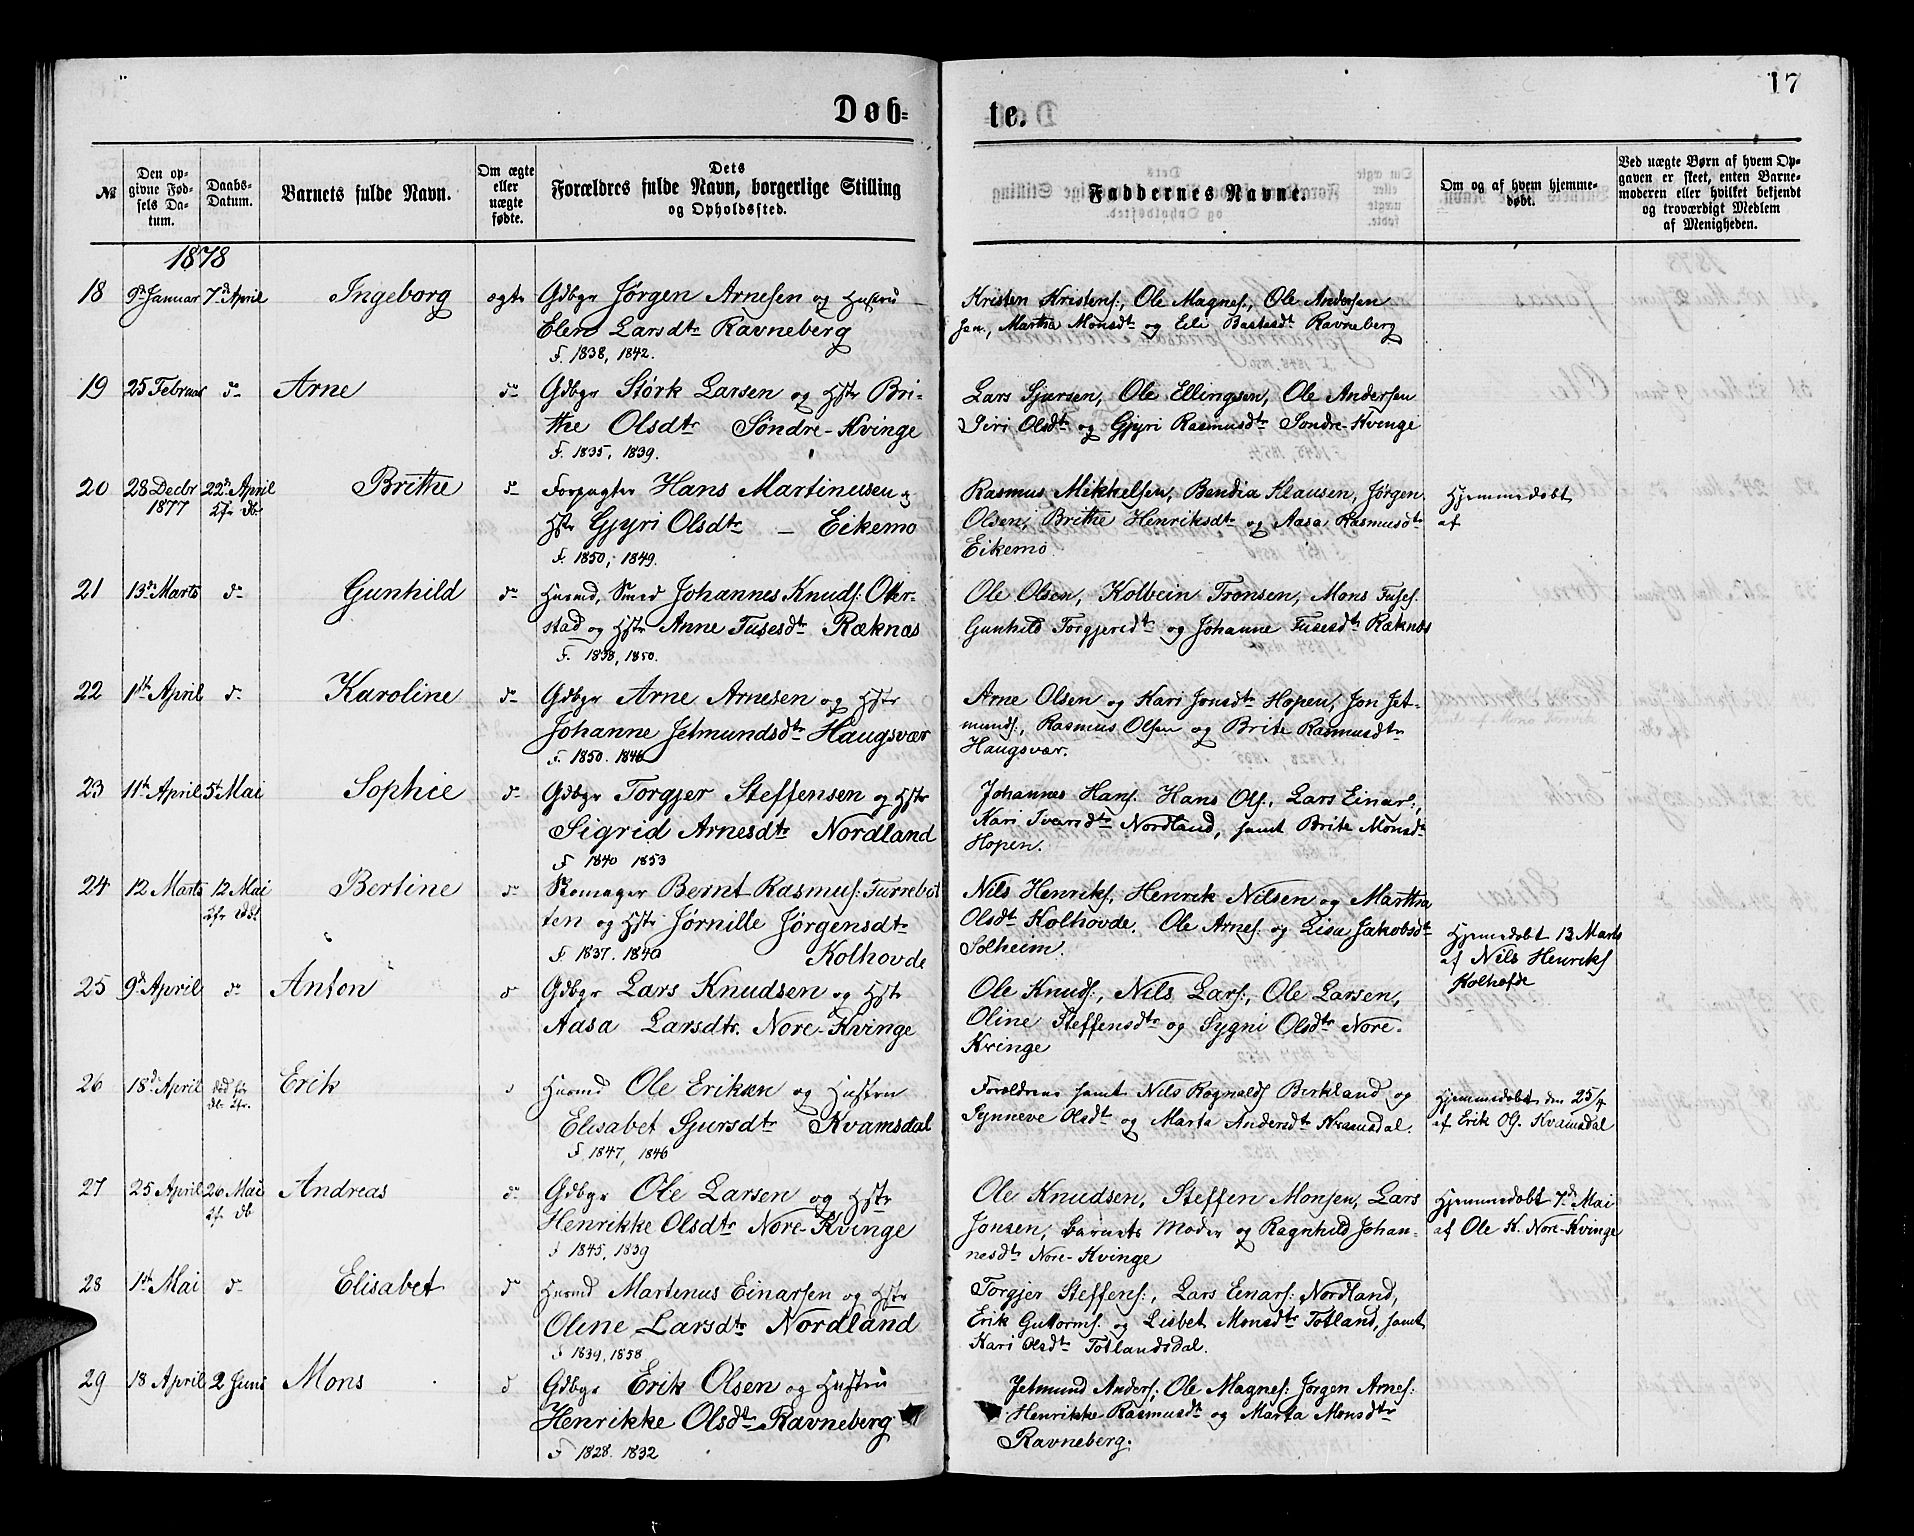 17
Døb=
te.
№
Den op-
givne Fød-
sels Da-
tum.
Daabs-
Datum.
Barnets fulde Navn.
Om ægte
eller
uægte
fødte.
Dets
Forældres fulde Navn, borgerlige Stilling
og Opholdssted.
Faddernes Navne.
Om og af hvem hjemme-
døbt.
Ved uægte Børn af hvem Op-
gaven er skeet, enten Barne-
moderen eller hvilket bekjendt
og troværdigt Medlem
af Menigheden.
1878
18 9de Januar 7de April Ingeborg ægte Gdbgr Jørgen Arnesen og Hustru
Elen Larsdtr Ravneberg
F. 1838, 1842.
Kristen Kristens., Ole Magnes., Ole Andersen
sen., Martha Monsdtr og Eli Bastesdtr Ravneberg
19 25 Februar do Arne do Gdbgr Størk Larsen og Hstr Bri-
the Olsdtr Søndre-Kvinge
F. 1835, 1839.
Lars Sjursen, Ole Ellingsen, Ole Andersen
Siri Olsdtr og Gjyri Rasmusdtr Søndre-Kvinge
20 28 Decbr 22de April Brithe do Forpagter Hans Martinusen og
1877
Hstr Gjyri Olsdtr – Eikemo
F. 1850, 1849.
Rasmus Mikkelsen, Bendix Klausen, Jørgen
Olsen, Brithe Henriksdtr og Aasa Rasmusdtr
Eikemo
Hjemmedøbt
af
21 13de Marts do Gunhild do Husmd, Smed Johannes Knuds. Oter-
stad og Hstr Anne Tusesdtr Ræknæs
F. 1838, 1850.
Ole Olsen, Kolbein Tronsen, Mons Tuses.
Gunhild Torgjersdtr og Johanne Tusesdtr Ræknæs
22 1ste April do Karoline do Gdbgr Arne Arnesen og Hstr
Johanne Jetmundsdtr Haugsvær
F. 1850. 1846
Arne Olsen og Kari Jonsdtr Hopen, Jon Jet-
munds., Rasmus Olsen og Brite Rasmusdtr
Haugsvær.
23 11te April 5te Mai Sophie do Gdbgr Torgjer Steffensen og Hstr
Sigrid Arnesdtr Nordland
F 1840 1853
Johannes Hans. Hans Ols., Lars Einars.,
Kari Iversdtr Nordland, samt Brite Monsdtr
Hopen.
24 12 Marts 12 Mai Bertine do Skomager Bernt Rasmus. Turrebot
ten og Hstr Jørnille Jørgensdtr
F 1837. 1840 Kolhovde
Nils Henriks., Henrik Nilsen og Martha
Olsdtr Kolhovde, Ole Arnes. og Lisa Jakobsdtr
Solheim.
Hjemmedøbt 13 Marts
af Nils Henriks.
Kolhofde
25 9de April do Anton do Gdbgr Lars Knudsen og Hstr
Aasa Larsdtr. Nore-Kvinge
Ole Knuds., Nils Lars., Ole Larsen,
Oline Steffensdtr og Sygni Olsdtr Nore-
Kvinge
26 18de April Erik Husmd Ole Eriksen og Hustru
Elisabet Sjursdtr Kvamsdal
F. 1847, 1846
Forældrene samt Nils Ragnalds. Birkland og
Synneve Olsdtr og Marta Andersdtr Kvamsdal.
Hjemmedøbt den 25/4
af Erik Ols. Kvamsdal
27 25 April 26 Mai Andreas do Gdbgr Ole Larsen og Hstr
Henrikke Olsdtr Nore-Kvinge
F 1845, 1839
Ole Knudsen, Steffen Monsen, Lars
Jonsen, Barnets Moder og Ragnhild Johan-
nesdtr Nore-Kvinge
Hjemmedøbt 7de Mai
af Ole K. Nore-Kvinge
28 1ste Mai do Elisabet do Husmd Martenus Einarsen og Hstr
Oline Larsdtr Nordland
F 1839, 1858
Torgjer Steffens., Lars Einars. Nordland,
Erik Guttorms. og Lisbet Monsdtr Totland, samt
Kari Olsdtr Totlandsdal.
29 18 April 2 Juni Mons d Gdbgr Erik Olsen og Hustru
Henrikke Olsdtr Ravneberg
F 1828. 1832
Jetmund Anders., Ole Magnes. Jørgen Arnes.
Henrikke Rasmusdtr og Marta Monsdtr
Ravneberg.